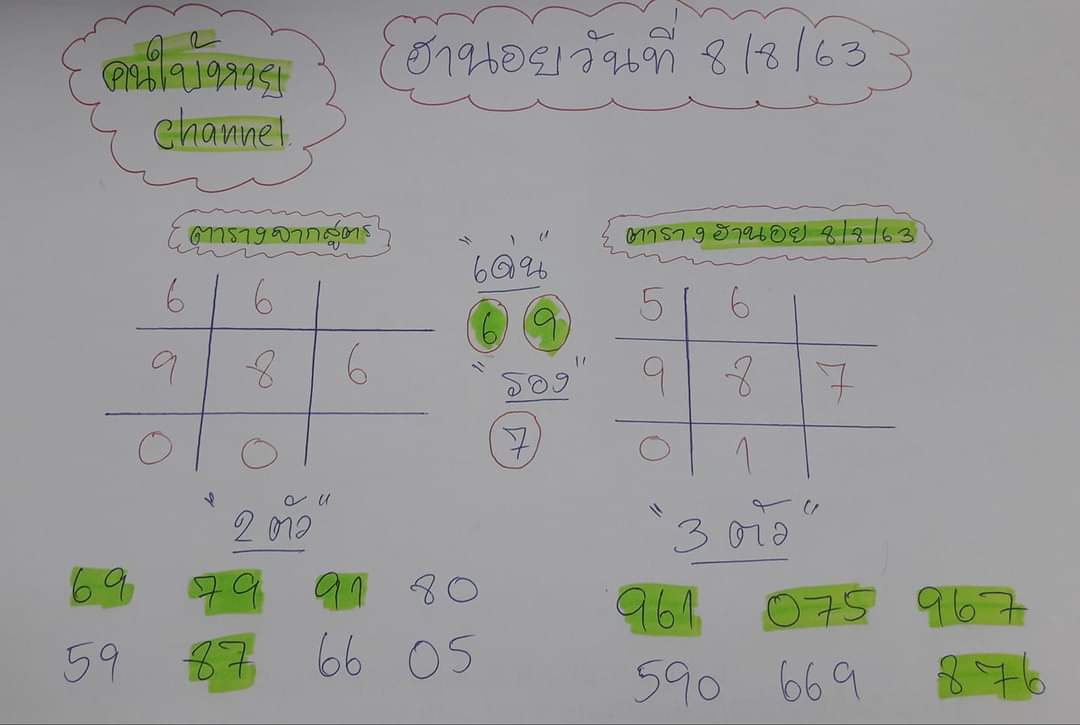 คนใบ้หวย
channel.
ฮานอยวันที่ 8/8/63
ตารางจากสูตร
6 6
9 8 6
0 0
"เด่น"
6 9
"รอง"
7
ตารางฮานอย 8/8/63
5 6
9 8 7
0 1
"2 ตัว"
69 79 91 80
59 87 66 05
"3 ตัว"
961 075 967
590 669 876